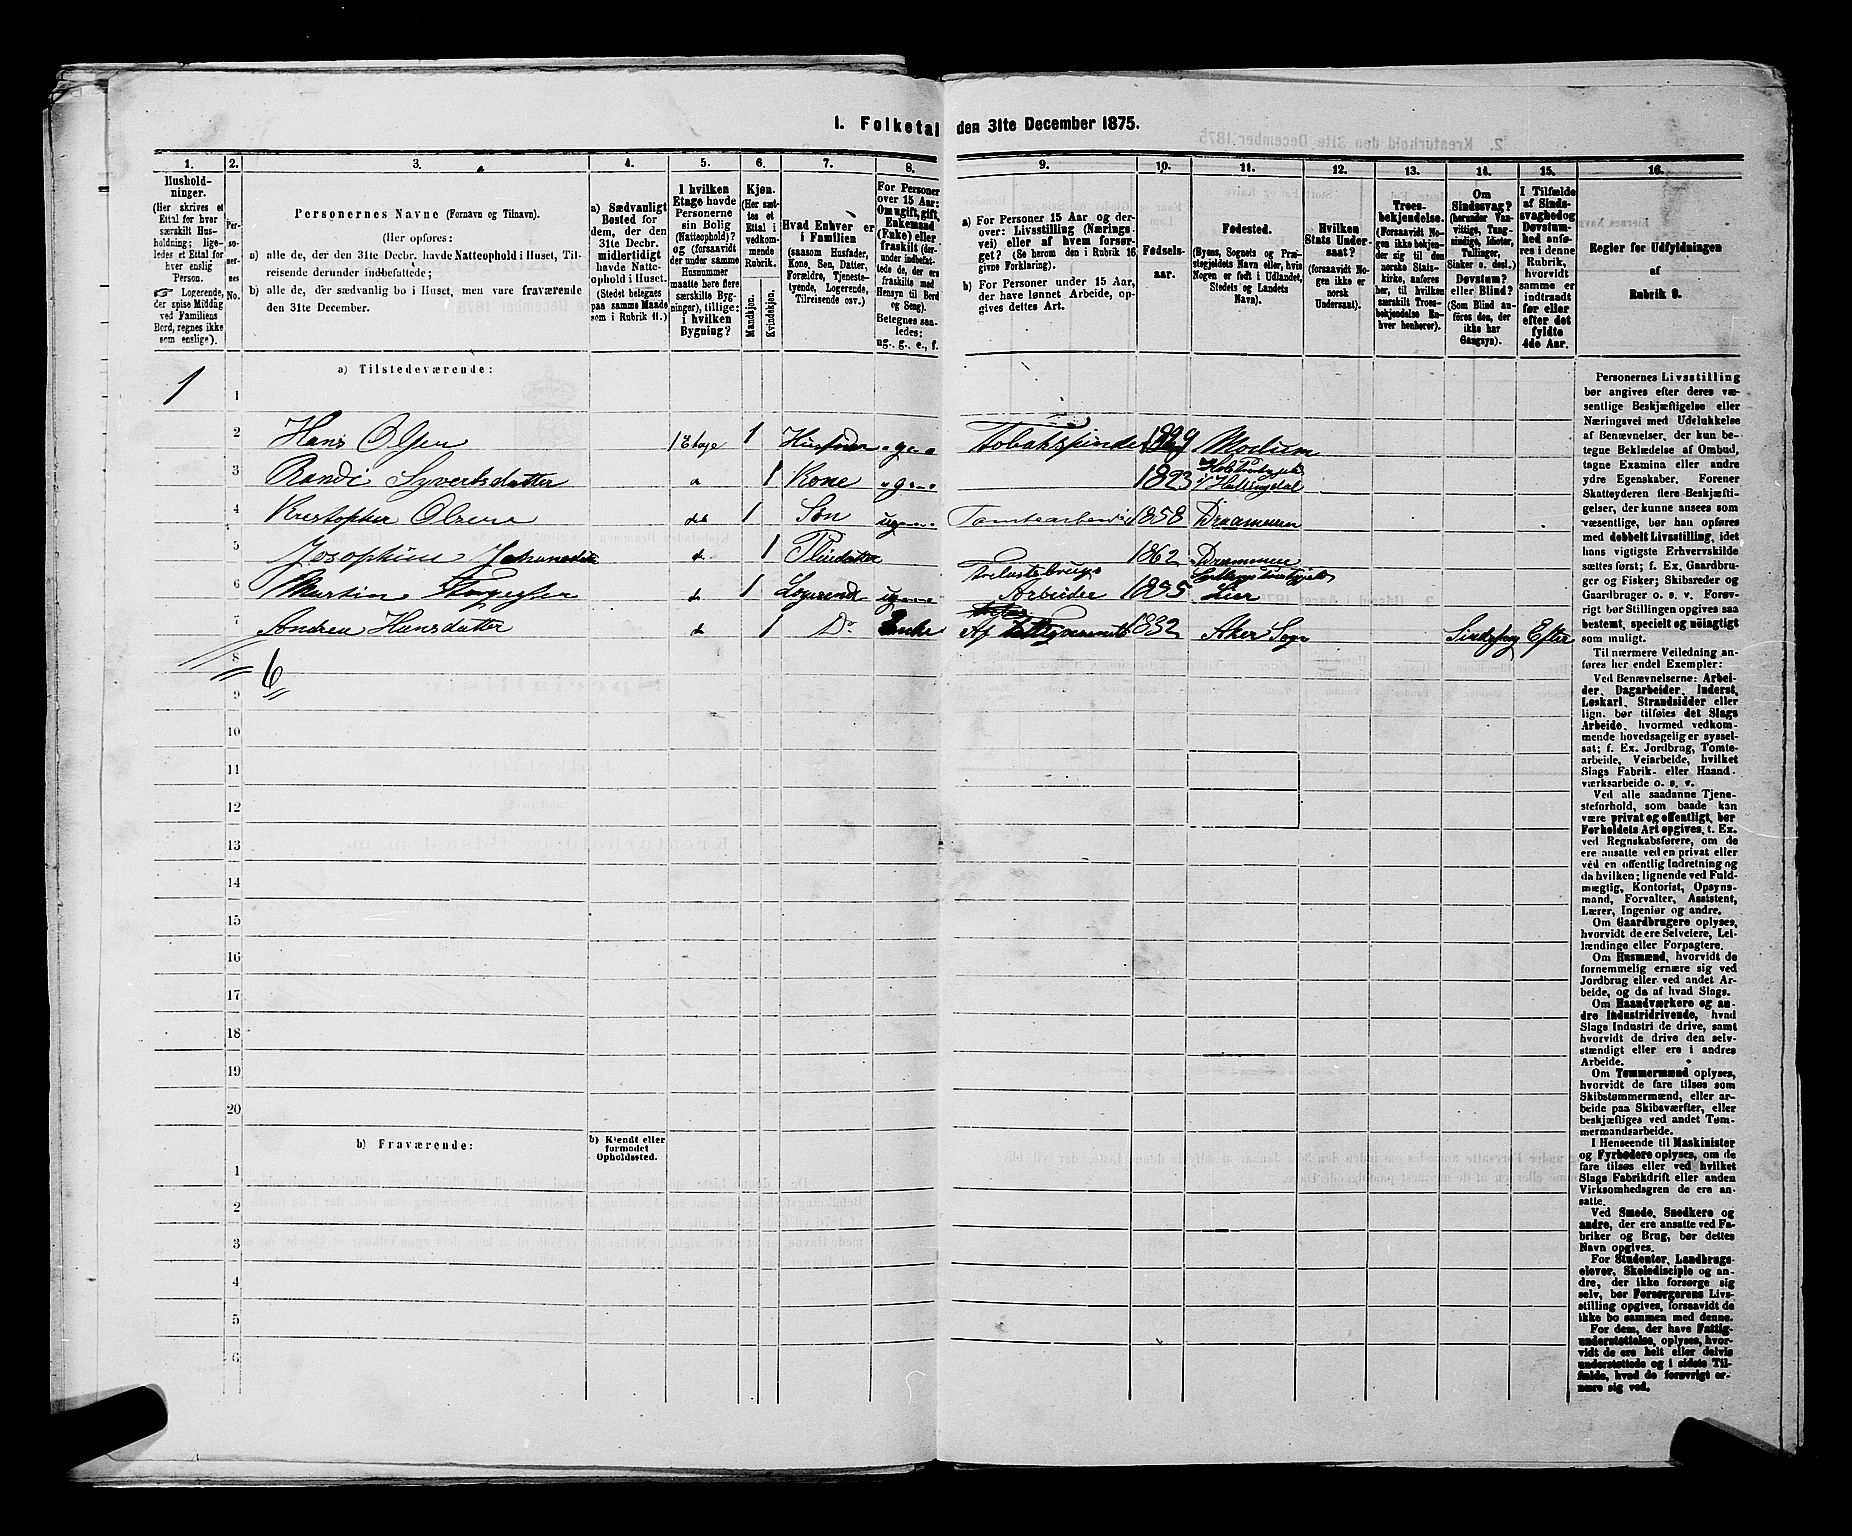 I. Folketal den 31te December 1875.
1. 2. 3. 4. 5. 6. 7. 8. 9. 10. 11. 12. 13. 14. 15. 16.
Husholdninger.
(Her skrives et Ettal for hver særskilt Husholdning; ligeledes et Ettal for hver enslig Person.
☞ Logerende, der spise Middag ved Familiens Bord, regnes ikke som enslige).
Personernes No.
Personernes Navne (Fornavn og Tilnavn).
(Her opføres:
a) alle de, der den 31te Decbr. havde Natteophold i Huset, Tilreisende derunder indbefattede;
b) alle de, der sædvanlig bo i Huset, men vare fraværende den 31te December.
a) Sædvanligt Bosted for dem, der den 31te Decbr. midlertidigt havde Natteophold i Huset.
(Stedet betegnes paa samme Maade som i Rubrik 11.)
I hvilken Etage havde Personerne sin Bolig (Natteophold)? og (forsaavidt der under samme Husnummer maatte høre flere særskilte Bygninger), tillige: i hvilken Bygning?
Kjøn.
(Her sættes et Ettal i vedkommende Rubrik.
Mandkjøn. Kvindekjøn.
Hvad Enhver er i Familien
(saasom Husfader, Kone, Søn, Datter, Forældre, Tjenestetyende, Logerende, Tilreisende osv.)
For Personer over 15 Aar: Om ugift, gift, Enkemand (Enke) eller fraskilt (derunder indbefattede de, der ere fraskilte med Hensyn til Bord og Seng).
Betegnes saaledes:
ug., g., e., f.
a) For Personer 15 Aar og derover: Livsstilling (Næringsvei) eller af hvem forsørget? (Se herom den i Rubrik 16 givne Forklaring).
b) For Personer under 15 Aar, der have lønnet Arbeide, opgives dettes Art.
Fødselsaar.
Fødested.
(Byens, Sognets og Præstegjeldets Navn eller, hvis Nogen er født i Udlandet, Stedets og Landets Navn).
Hvilken Stats Undersaat?
(forsaavidt Nogen ikke er norsk Undersaat).
Troesbekjendelse.
(Forsaavidt Nogen ikke bekjender sig til den norske Statskirke, anføres her, til hvilken særskilt Troesbekjendelse Enhver henhører).
Om Sindssvag? (herunder Vanvittige, Tungsindige, Idioter, Tullinger, Sinker o. desl.)
Døvstum? eller Blind?
(Som Blind anføres den, der ikke har Gangsyn).
I Tilfælde af Sindssvaghed og Døvstumhed anføres i denne Rubrik, hvorvidt samme er indtraadt før eller efter det fyldte 4de Aar.
Regler for Udfyldningen af Rubrik 9.
a) Tilstedeværende:
1
1
2 Hans Olsen 1 Etage 1 Husfader g Tobakspinder Modum
3 Randi Syvertsdatter 1 Kone g 1823 Hallingdal
4 Kristopher Olsen 1 Søn ug 1858 Drammen
5 Josephine 1 Pleiedatter 1862 Drammen
6 Martin 1 Logerend ug Arbeider 1855 Lier
7 Andrea Hansdatter 1 Do Enke Af 1832 Aker Sogn Efter
8 6
9
10
11
12
13
14
15
16
17
18
19
20
b) Fraværende:
b) Kjendt eller formodet Opholdssted.
1
2
3
4
5
6
Personernes Livsstilling bør angives efter deres væsentlige Beskjæftigelse eller Næringsvei med Udelukkelse af Benævnelser, der kun betegne Beklædelse af Ombud, tagne Examina eller andre ydre Egenskaber. Forener Skatteyderen flere Beskjæftigelser, der kunne ansees som væsentlige, bør han opføres med dobbelt Livsstilling, idet hans vigtigste Erhvervskilde sættes først; f. Ex. Gaardbruger og Fisker; Skibsreder og Gaardbruger o. s. v. Forøvrigt bør Stillingen opgives saa bestemt, specielt og nøiagtigt som muligt.
Til nærmere Veiledning anføres her endel Exempler:
Ved Benævnelserne: Arbeider, Dagarbeider, Inderst, Løskarl, Strandsidder eller lign. bør tilføies det Slags Arbeide, hvormed vedkommende hovedsagelig er sysselsat; f. Ex. Jordbrug, Tomtearbeide, Veiarbeide, hvilket Slags Fabrik- eller Haandværksarbeide o. s. v.
Ved alle saadanne Tjenesteforhold, som baade kan være privat og offentligt, bør Forholdets Art opgives, t. Ex. ved Regnskabsførere, om de ere ansatte ved en privat eller ved en offentlig Indretning og da hvilken; lignende ved Fuldmægtig, Kontorist, Opsynsmand, Forvalter, Assistent, Lærer, Ingeniør og andre.
Om Gaardbrugere oplyses, hvorvidt de ere Selveiere, Leilændinge eller Forpagtere.
Om Husmænd, hvorvidt de fornemmelig ernære sig ved Jordbrug eller ved andet Arbeide, og da af hvad Slags.
Om Haandværkere og andre Industridrivende, hvad Slags Industri de drive, samt hvorvidt de drive den selvstændigt eller ere i andres Arbeide.
Om Tømmermænd oplyses, hvorvidt de fare tilsøs som Skibstømmermænd, eller arbeide paa Skibsværfter, eller beskjæftiges ved andet Tømmermandsarbeide.
I Henseende til Maskinister og Fyrbødere oplyses, om de fare tilsøs eller ved hvilket Slags Fabrikdrift eller anden Virksomhedsgren de ere ansatte.
Ved Smede, Snedkere og andre, der ere ansatte ved Fabriker og Brug, bør dettes Navn opgives.
For Studenter, Landbrugselever, Skoledisciple og andre, der ikke forsørge sig selv, bør Forsørgerens Livsstilling opgives, forsaavidt de ikke bo sammen med denne.
For dem, der have Fattigunderstøttelse, oplyses, hvorvidt de ere helt eller delvis understøttede og i sidste Tilfælde, hvad de forøvrigt ernære sig ved.